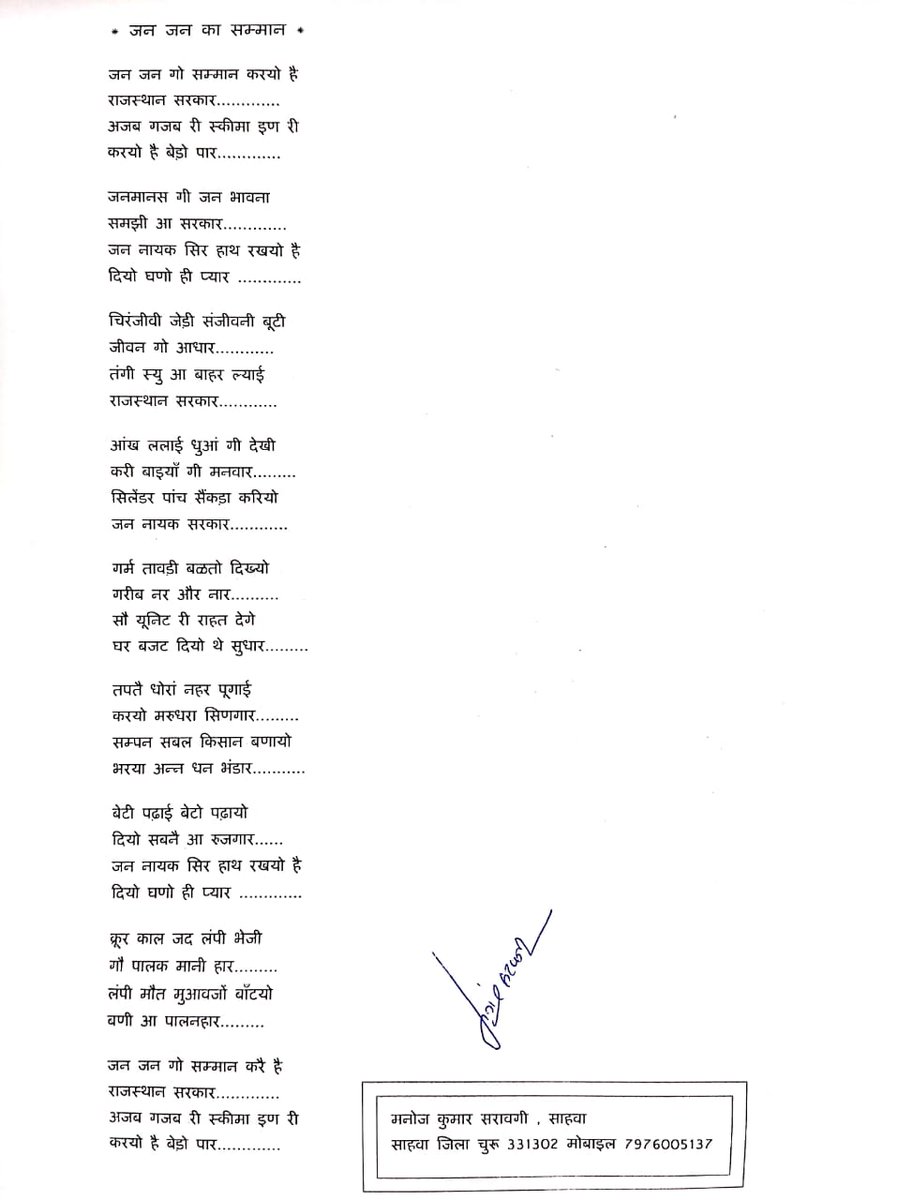 * जन जन का सम्मान *
जन जन गो सम्मान करयो है
राजस्थान सरकार.............
अजब गजब री स्कीमा इण री
करयो है बेड़ो पार.............
जनमानस गी जन भावना
समझी आ सरकार.............
जन नायक सिर हाथ रखयो है
दियो घणो ही प्यार .............
चिरंजीवी जेड़ी संजीवनी बूटी
जीवन गो आधार............
तंगी स्यु आ बाहर ल्याई
राजस्थान सरकार............
आंख ललाई धुआं गी देखी
करी बाइयाँ गी मनवार.........
सिलेंडर पांच सैंकड़ा करियो
जन नायक सरकार............
गर्म तावड़ी बळतो दिख्यो
गरीब नर और नार..........
सौ यूनिट री राहत देगे
घर बजट दियो थे सुधार.........
तपतै धोरां नहर पूगाई
करयो मरुधरा सिणगार.........
सम्पन सबल किसान बणायो
भरया अन्न धन भंडार...........
बेटी पढ़ाई बेटो पढ़ायो
दियो सबनै आ रुजगार......
जन नायक सिर हाथ रखयो है
दियो घणो ही प्यार .............
क्रूर काल जद लंपी भेजी
गौ पालक मानी हार.........
लंपी मौत मुआवजों बाँटयो
बणी आ पालनहार.........
जन जन गो सम्मान करै है
राजस्थान सरकार.............
अजब गजब री स्कीमा इण री
करयो है बेड़ो पार.............
मनोज कुमार सरावगी , साहवा
साहवा जिला चुरू 331302 मोबाइल 7976005137